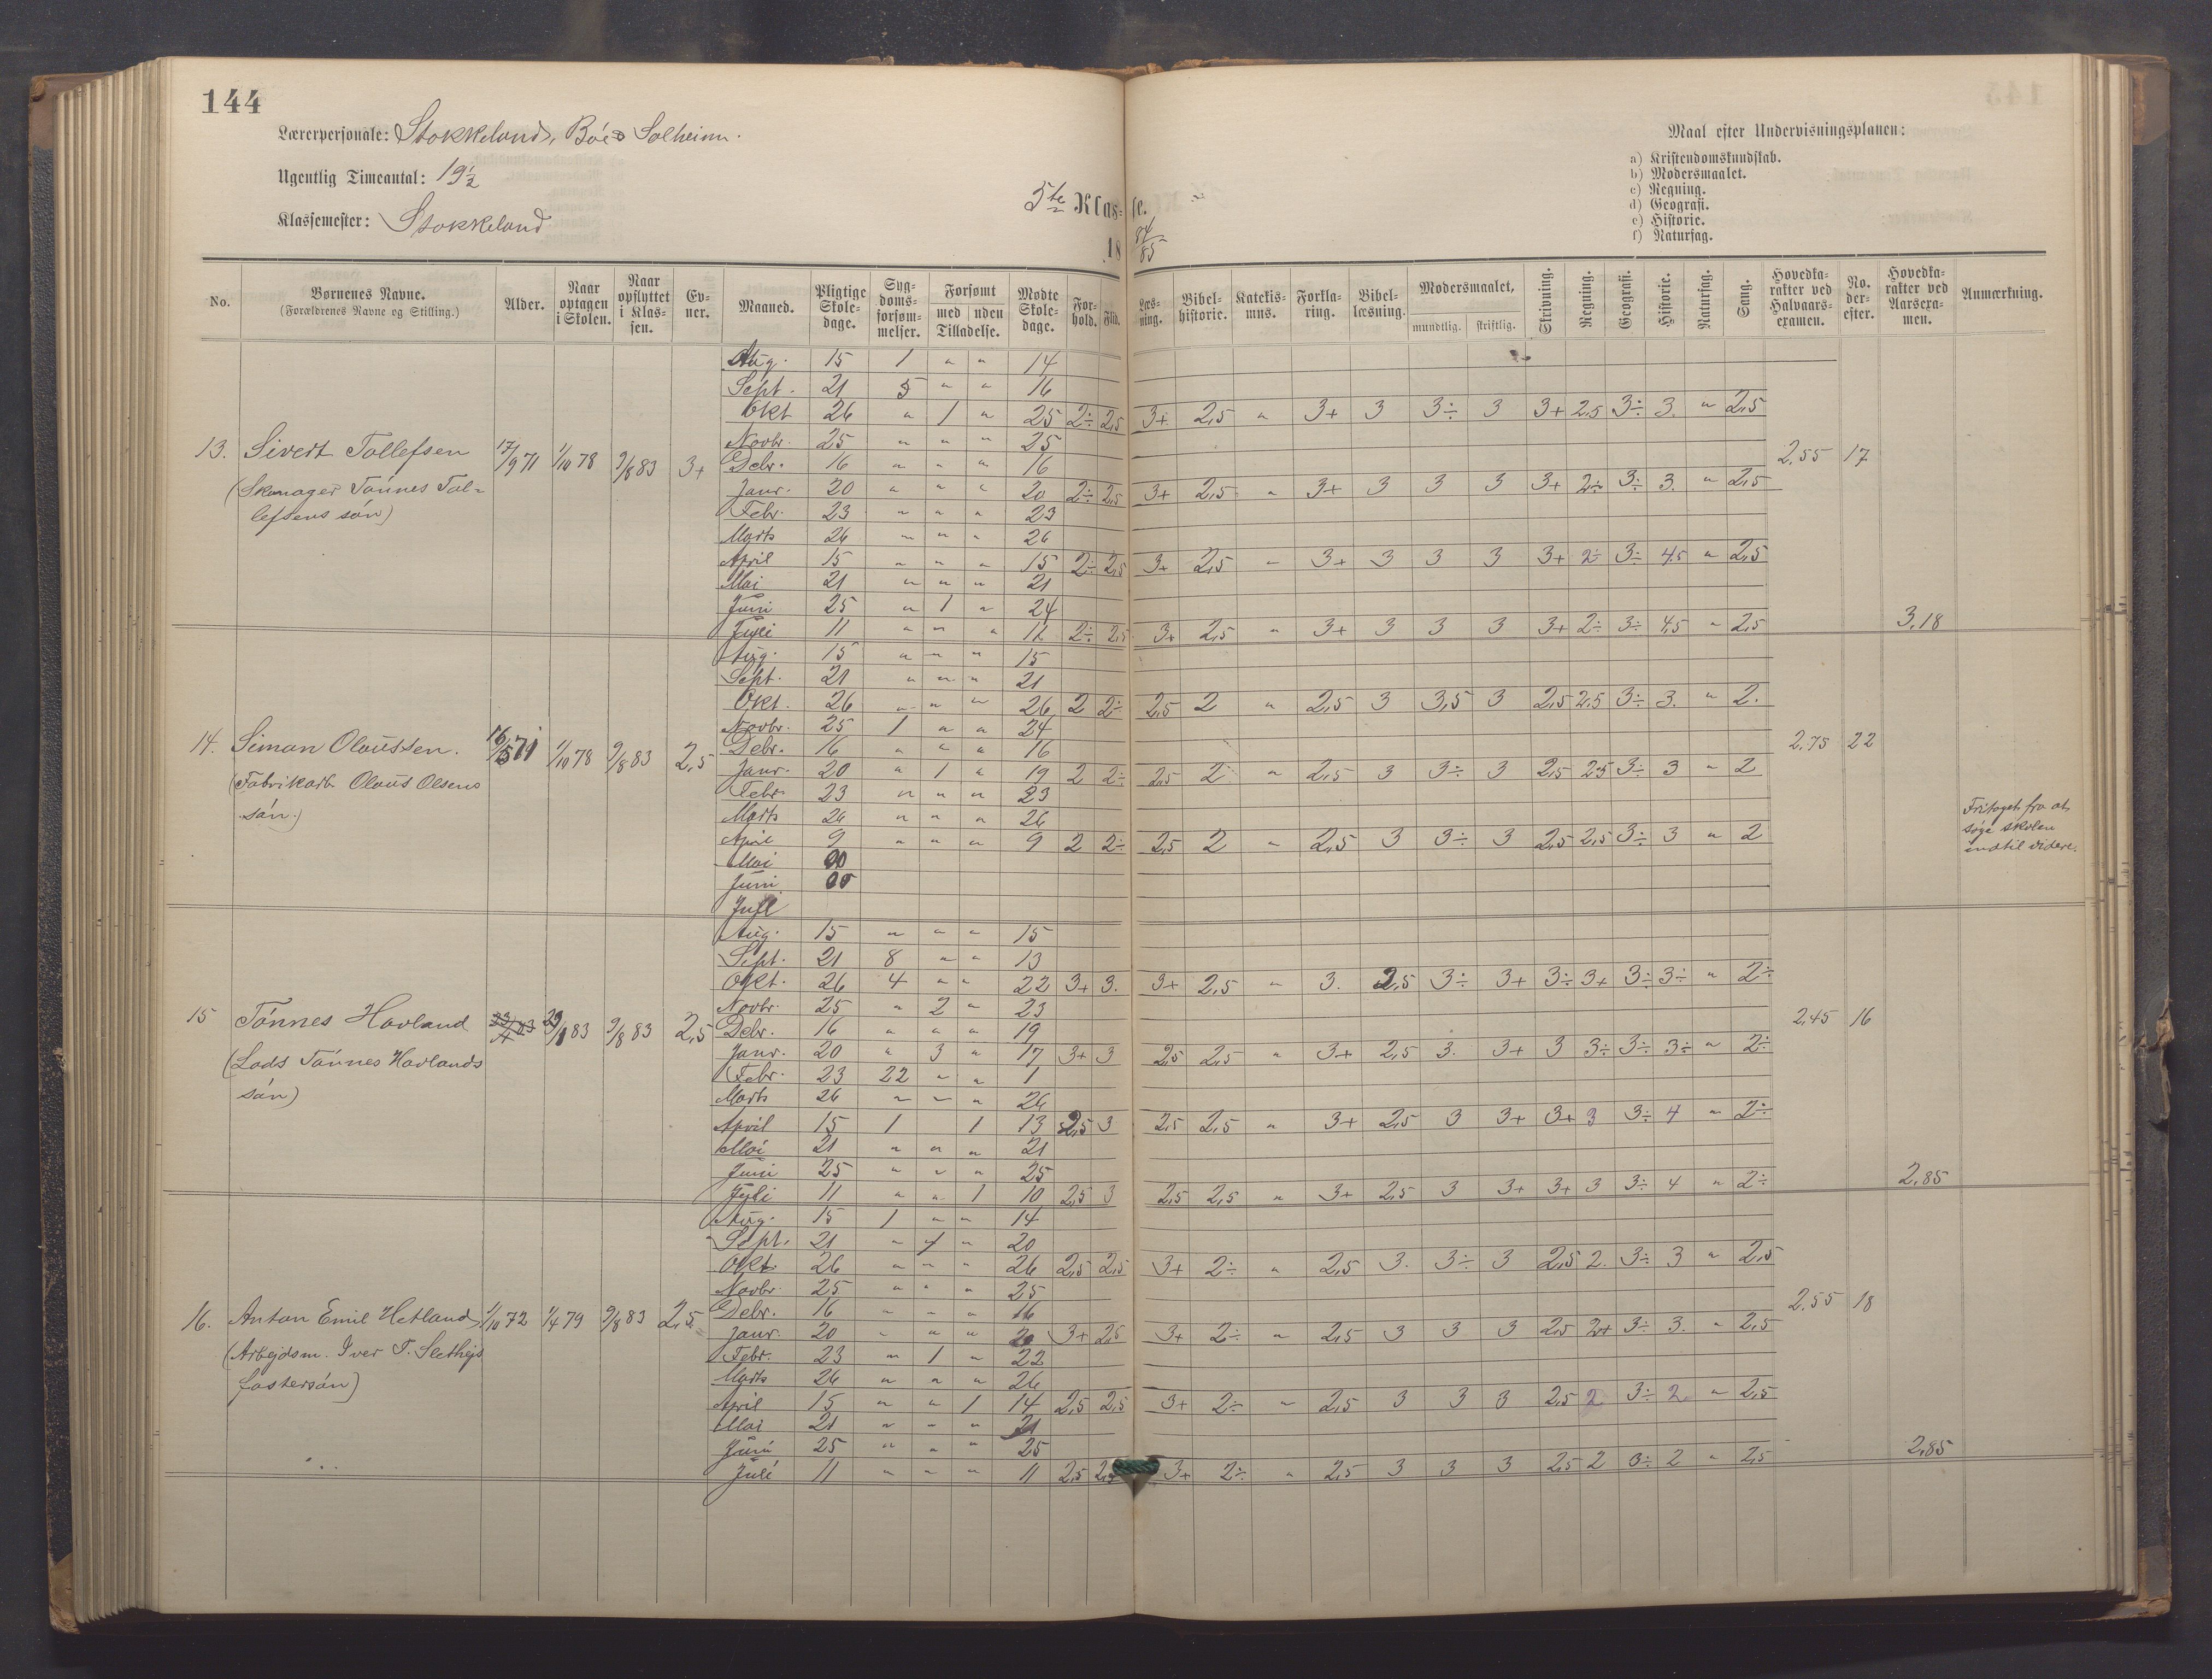 144
Lærerpersonale: Stokkeland, Böe & Solheim.
Ugentlig Timeantal: 19½
Klassemester: Stokkeland
5te Klasse.
18 84/85
Maal efter Undervisningsplanen:
a) Kristendomskundskab.
b) Modersmaalet.
c) Regning.
d) Geografi.
e) Historie.
f) Naturfag.
No. Børnenes Navne. (Forældrenes Navne og Stilling.) Alder. Naar optagen i Skolen. Naar opflyttet i Klassen. Evner. Maaned. Pligtige Skoledage. Sygdomsforsømmelser. Forsømt med uden Tilladelse. Mødte Skoledage. Forhold. Flid. Læsning. Bibelhistorie. Katekismus. Forklaring. Bibellæsning. Modersmaalet, mundtlig. skriftlig. Skrivning. Regning. Geografi. Historie. Naturfag. Sang. Hovedkarakter ved Halvaarsexamen. No. derefter. Hovedkarakter ved Aarsexamen. Anmærkning.
Aug. 15 1 " " 14
Sept. 21 5 " " 16
Okt 26 " 1 " 25 2÷ 2,5 3+ 2,5 " 3+ 3 3÷ 3 3+ 2,5 3÷ 3. " 2,5
Novbr. 25 " " " 25
13. Sivert Tollefsen 17/9 71 1/10 78 9/8 83 3+ Debr. 16 " " " 16 2,55 17
(Skomager Tönnes Tol= Janr. 20 " " " 20 2÷ 2,5 3+ 2,5 " 3+ 3 3 3 3+ 2÷ 3÷ 3. " 2,5
lefsens sön) Febr. 23 " " " 23
Marts 26 " " " 26
April 15 " " " 15 2÷ 2,5 3+ 2,5 " 3+ 3 3 3 3+ 2÷ 3÷ 4,5 " 2,5
Mai 21 " " " 21
Juni 25 " 1 " 24
Juli 11 " " " 11 2÷ 2,5 3+ 2,5 " 3+ 3 3 3 3+ 2÷ 3÷ 4,5 " 2,5 3,18
Aug. 15 " " " 15
Sept. 21 " " " 21
Okt. 26 " " " 26 2 2÷ 2,5 2 " 2,5 3 3,5 3 2,5 2,5 3÷ 3. " 2.
Novbr. 25 1 " " 24
14. Simon Olaussen. 16/5 71 1/10 78 9/8 83 2,5 Debr. 16 " " " 16 2,75 22
(Fabrikarb. Olaus Olsens Janr. 20 " 1 " 19 2 2÷ 2,5 2 " 2,5 3 3÷ 3 2,5 2,5 3÷ 3 " 2
sön.) Febr 23 " " " 23
Marts 26 " " " 26
April 9 " " " 9 2 2÷ 2,5 2 " 2,5 3 3÷ 3 2,5 2,5 3÷ 3 " 2
Fritaget fra at
søge skolen
indtil videre.
Mai
Juni
Juli
Aug. 15 " " " 15
Sept. 21 8 " " 13
Okt. 26 4 " " 22 3+ 3. 3+ 2,5 " 3. 2,5 3÷ 3+ 3÷ 3+ 3÷ 3÷ " 2÷
Novbr. 25 " 2 " 23
15 Tönnes Havland 23/1 83 9/8 83 2,5 Debr. 16 " " " 19 2,45 16
(Lods Tönnes Havlands Janr. 20 " 3 " 17 3+ 3 2,5 2,5 " 3+ 2,5 3. 3+ 3 3÷ 3÷ 3÷ " 2÷
sön) Febr. 23 22 " " 1
Marts 26 " " " 26
April 15 1 1 13 2,5 3 2,5 2,5 " 3+ 2,5 3 3+ 3+ 3 3÷ 4 " 2÷
Mai 21 " " " 21
Juni 25 " " " 25
Juli 11 " " 1 10 2,5 3 2,5 2,5 " 3+ 2,5 3 3+ 3+ 3 3÷ 4 " 2÷ 2,85
Aug. 15 1 " " 14
Sept. 21 " 1 " 20
Okt. 26 " " " 26 2,5 2,5 3+ 2÷ " 2,5 3. 3÷ 3 2,5 2. 3÷ 3 " 2,5
Novbr. 25 " " " 25
16. Anton Emil Hetland 1/10 72 1/4 79 9/8 83 2,5 Debr. 16 " " " 16 2,55 18
(Arbejdsm. Iver T. Slethejs Janr. 20 " " " 20 3+ 2,5 3+ 2÷ " 2,5 3 3 3 2,5 2+ 3÷ 3. " 2,5
fostersön) Febr. 23 " 1 " 22
Marts 26 " " " 26
April 15 " " 1 14 2,5 2,5 3+ 2÷ " 2,5 3 3 3 2,5 2 3÷ 2 " 2,5
Mai 21 " " " 21
Juni 25 " " " 25
Juli 11 " " " 11 2,5 2,5 3+ 2÷ " 2,5 3 3 3 2,5 2 3÷ 2 " 2,5 2,85